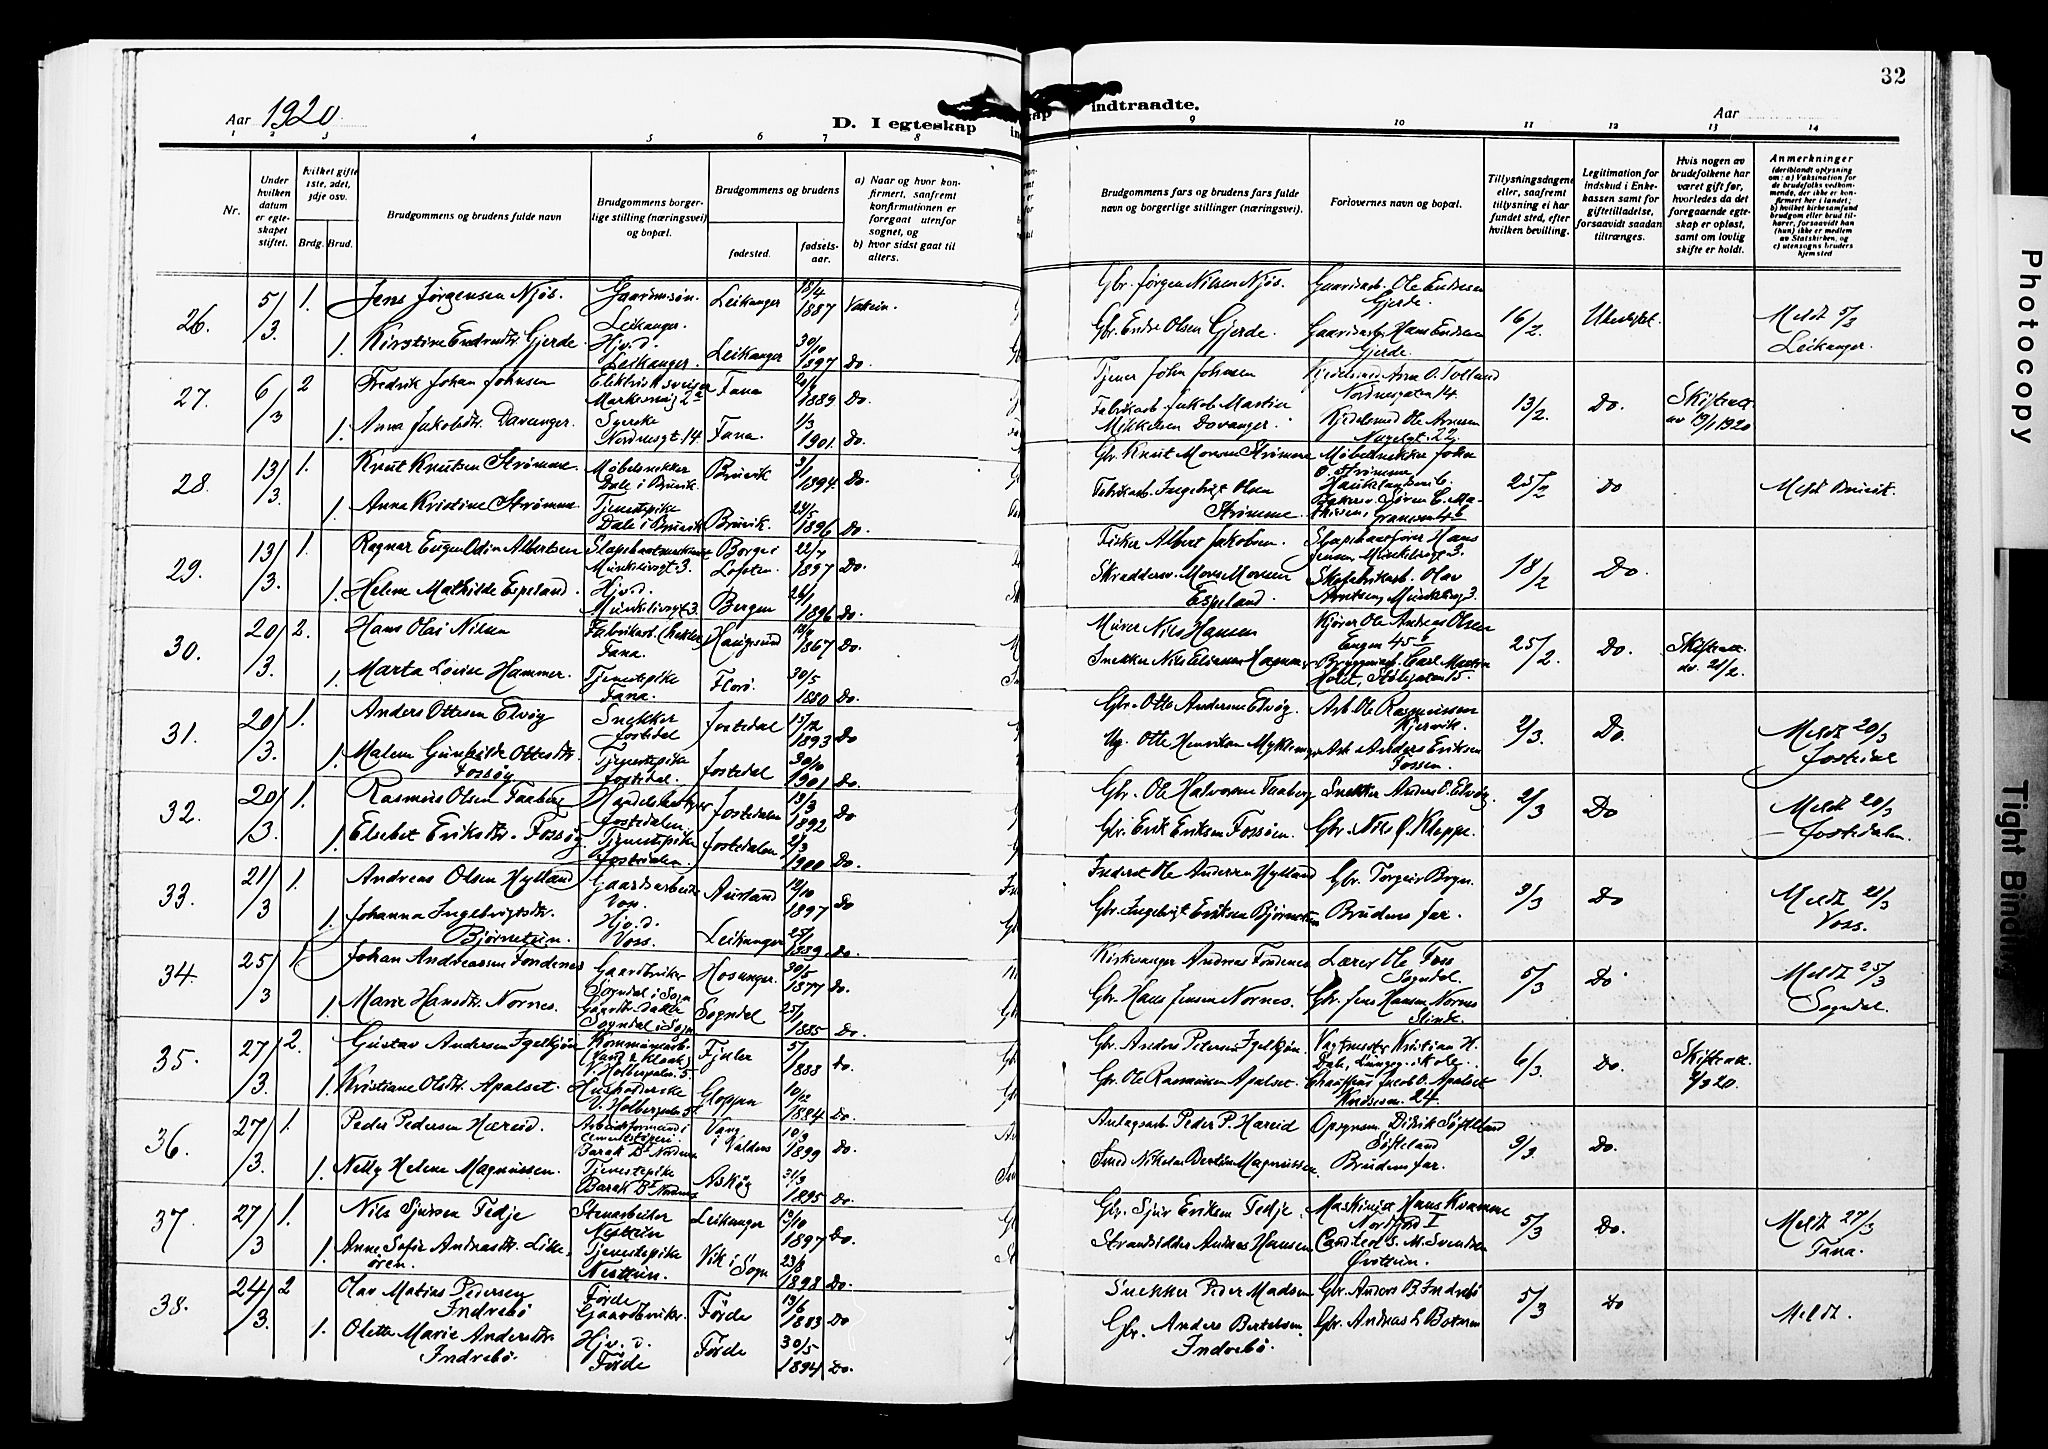 32
Aar 1920
D. I egteskap
indtraadte.
Aar
1 2 3 4 5 6 7 8
9 10 11 12 13 14
Nr.
Under hvilken datum er egteskapet stiftet.
hvilket gifte 1ste, 2det, 3dje osv.
Brdg. Brud.
Brudgommens og brudens fulde navn
Brudgommens borgerlige stilling (næringsvei) og bopæl.
Brudgommens og brudens
fødested.
fødselsaar.
a) Naar og hvor konfirmert, saafremt konfirmationen er foregaat utenfor sognet, og
b) hvor sidst gaat til alters.
Brudgommens fars og brudens fars fulde navn og borgerlige stillinger (næringsvei).
Forlovernes navn og bopæl.
Tillysningsdagene eller, saafremt tillysning ei har fundet sted, efter hvilken bevilling.
Legitimation for indskud i Enkekassen samt for giftetilladelse, forsaavidt saadan tiltrænges.
Hvis nogen av brudefolkene har været gift før, hvorledes da det foregaaende egteskap er opløst, samt om lovlig skifte er holdt.
Anmerkninger (deriblandt oplysning om: a) Vaksination for de brudefolks vedkommende, der ikke er konfirmert her i landet; b) hvilket kirkesamfund brudgom eller brud tilhører, forsaavidt han (hun) ikke er medlem av Statskirken, og c) utensogns bruders hjemsted
26. 5/3 1. Jens Jørgensen Njøs. Leikanger. Leikanger 18/4 1887
1. Kirstine Endresdtr. Gjerde Hjv.d. Leikanger. Leikanger 30/10 1897 Do.
Gbr. Jørgen Nilsen Njøs. Gaardsarb. Ole Endresen Gjerde.
Gbr. Endre Olsen Gjerde. Gaardsarb. Hans Endresen Gjerde. 16/2 Meldt 5/3 Leikanger.
27. 6/3 2 Fredrik Johan Johnsen Markevei 2a Fana 1889 Do.
1. Anna Jakobsdtr. Davanger. Syerske Nordnesgt. 14. Fana. 1/3 1901. Do.
Tjener John Johnsen Nordnesgaten 14.
Fabrikarb. Jakob Martin Mikkelsen Davanger. Kjedelsmed Ole Arnesen Nygelgt. 22. 13/2 Do. Skifteatt. av 19/1 1920
28. 13/3. 1. Knut Knutsen Strømme. Møbelsnekker Dale i Bruvik. Bruvik 1894. Do.
1. Anna Kristine Strømme. Tjenestepike Dale i Bruvik Bruvik. 23/5 1896 Do.
Gbr. Knut Monsen Strømme Møbelsnekker
Fabrikarb. Ingebrigt Olsen Strømme. 25/2 Do Meldt Bruvik.
29. 13/3. 1. Ragnar Eugen Odin Albertsen Munkelivsgt 3. Borge i Lofoten. 22/7 1897 Do.
1. Helene Mathilde Espeland. Hjv.d. Munkelivsgt 3. Bergen 26/1 1896 Do.
Fisker Albert Jakobsen. Hans Jensen, Munkelivsgt 3.
Skræddersv. Mons Monsen Espeland. Skofabrikarb. Olav Arntsen, Munkelivsg 3. 18/2 Do.
30. 20/3. 2. Hans Olai Nilsen Fana. Haugesund 1867 Do.
1. Marta Lovise Hammer. Tjenestepike Fana. Florø. 30/5 1880 Do.
Murer Nils Hansen Kjører Ole Andreas Olsen Engen 45b
Snekker Nils Eliassen Hammer 25/2. Do. Skifteatt. av. 21/2.
31. 20/3. 1. Anders Ottesen Elvøy Snekker Jostedal Jostedal 15/12 1893 Do
1. Malene Gunhilde Ottesdtr. Fossøy. Tjenestepike Jostedal. Jostedal 30/10 1901 Do.
Gbr. Otte Andersen Elvøy. Arb. Ole Rasmussen Kjervik.
Otte Henriksen Myklemyr Arb. Anders Eriksen Fossen. 2/3. Do. Meldt 20/3
32. 20/3. 1. Rasmus Olsen Faaberg Jostedalen. Jostedalen 13/3 1892 Do
1. Elsebet Eriksdtr. Fossøy. Tjenestepike Jostedalen. Jostedalen 2/3 1900 Do.
Gbr. Ole Halvorsen Faaberg Snekker Anders O. Elvøy.
Gbr. Erik Eriksen Fossøen. Gbr. Nils O. Kleppe. 2/3 Do Meldt 20/3 Jostedalen.
33. 21/3 1. Andreas Olsen Hylland Gaardsarbeider Voss. Aurland 19/10 1897 Do
1. Johanna Ingebrigtsdtr. Bjørnetun. Hjv.d. Voss. Leikanger 25/1 1889 Do.
Ole Andersen Hylland Gbr. Torgeir Brgn.
Gbr. Ingebrigt Eriksen Bjørnetun Brudens far. 3/3 Do Meldt 21/3 Voss.
34. 25/3 1. Johan Andreassen Fondenes Gaardbruker Sogndal i Sogn Hosanger. 30/5 1877 Do.
1. Marie Hansdtr. Nornes. Sogndal i Sogn Sogndal 25/1 1885 Do.
Kirkesanger Andreas Fondenes Lærer Ole Foss Sogndal.
Gbr. Hans Jensen Nornes. Gbr. Jens Hansen Nornes Slinde. 5/3 Do Meldt 25/3 Sogndal.
35. 27/3. 2. Gustav Andersen Igelkjøn Kommunearb. (Vand & Kloak) V. Holbergsalm. 5. Fjaler 5/1 1888 Do
1. Kristiane Olsdtr. Apalset. Husholderske V. Holbergsalm 5. Gloppen 10/12 1884 Do.
Gbr. Anders Petersen Igelkjøn. Vagtmester Kristian H. Dale, Lungeg. skole.
Gbr. Ole Rasmussen Apalset. Chauffeur Jacob O. Apalset 24. 6/3 Do. Skifteatt. 4/3 20.
36. 27/3. 1. Peder Pedersen Hæreid. Arbeidsformand i cementstøperi. Vang i Valdres 10/3 1899 Do.
1. Nelly Helene Magnussen. Tjenestepike Askøy 31/3 1895 Do.
Anlægsarb. Peder P. Hæreid Opsynsm. Didrik Søfteland Søfteland
Smed Nikolai Bertin Magnussen. Brudens far. 9/3. Do.
37. 27/3 1. Nils Sjursen Tedje Stenarbeider Nesttun Leikanger 10/10 1897 Do.
1. Anne Sofie Andreasdtr. Likkeøren. Tjenestepike Nesttun. Vik i Sogn 23/8 1898 Do.
Gbr. Sjur Eriksen Tedje. Maskinist Hans Kvamme Nordfjord I
Strandsidder Andreas Hansen Cand. teol. S. M. Svendsen Øvsttun. 5/3 Do. Meldt 27/3 Fana.
38. 24/3. 2 Olav Matias Pedersen Indrebø Førde Gaardbruker. Førde 13/6 1883 Do
1. Oletta Marie Andersdtr. Indrebø. Hjv. d. Førde Førde 30/5 1894 Do.
Snekker Peder Madsen Gbr. Anders B. Indrebø
Gbr. Anders Bertelsen Indrebø. Gbr. Andreas L. Botnen 5/3 Do Meldt.
Photocopy
Tight Binding